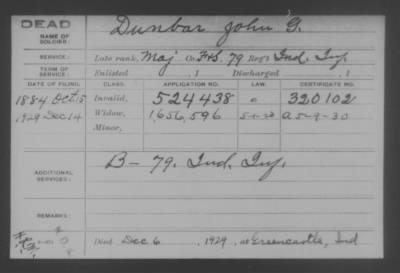 DEAD
NAME OF SOLDIER: Dunbar John G.
SERVICE: Late rank, Maj Co. F&S. 79 Reg't Ind. Inf.
TERM OF SERVICE: Enlisted , 1 Discharged , 1
DATE OF FILING. CLASS. APPLICATION NO. LAW. CERTIFICATE NO.
1884 Oct 15 Invalid, 524438 320102
1929 Dec 14 Widow, 1,656,596 5-1-20 A 5-9-30
Minor,
ADDITIONAL SERVICES: B - 79. Ind. Inf.
REMARKS:
Died Dec 6, 1929, at Greencastle, Ind